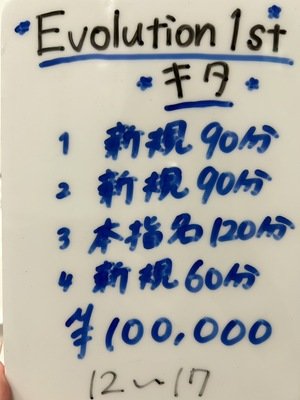 Evolution 1st
キタ
1 新規 90分
2 新規 90分
3 本指名 120分
4 新規 60分
¥100,000
12〜17